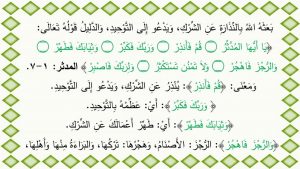 بَعَثَهُ اللهُ بِالنِّذَارَةِ عَنِ الشِّرْكِ، وَيَدْعُو إِلَى التَّوْحِيدِ، وَالدَّلِيلُ قَوْلُهُ تَعَالَى:
﴿يَا أَيُّهَا الْمُدَّثِّرُ ۝ قُمْ فَأَنْذِرْ ۝ وَرَبَّكَ فَكَبِّرْ ۝ وَثِيَابَكَ فَطَهِّرْ ۝
وَالرُّجْزَ فَاهْجُرْ ۝ وَلَا تَمْنُنْ تَسْتَكْثِرُ ۝ وَلِرَبِّكَ فَاصْبِرْ﴾ المدثر: ١-٧.
وَمَعْنَى: ﴿قُمْ فَأَنْذِرْ﴾: يُنْذِرُ عَنِ الشِّرْكِ، وَيَدْعُو إِلَى التَّوْحِيدِ.
﴿وَرَبَّكَ فَكَبِّرْ﴾: أَيْ: عَظِّمْهُ بِالتَّوْحِيدِ.
﴿وَثِيَابَكَ فَطَهِّرْ﴾: أَيْ: طَهِّرْ أَعْمَالَكَ عَنِ الشِّرْكِ.
﴿وَالرُّجْزَ فَاهْجُرْ﴾: الرُّجْزُ: الأَصْنَامُ، وَهَجْرُهَا: تَرْكُهَا، وَالبَرَاءَةُ مِنْهَا وَأَهْلِهَا،